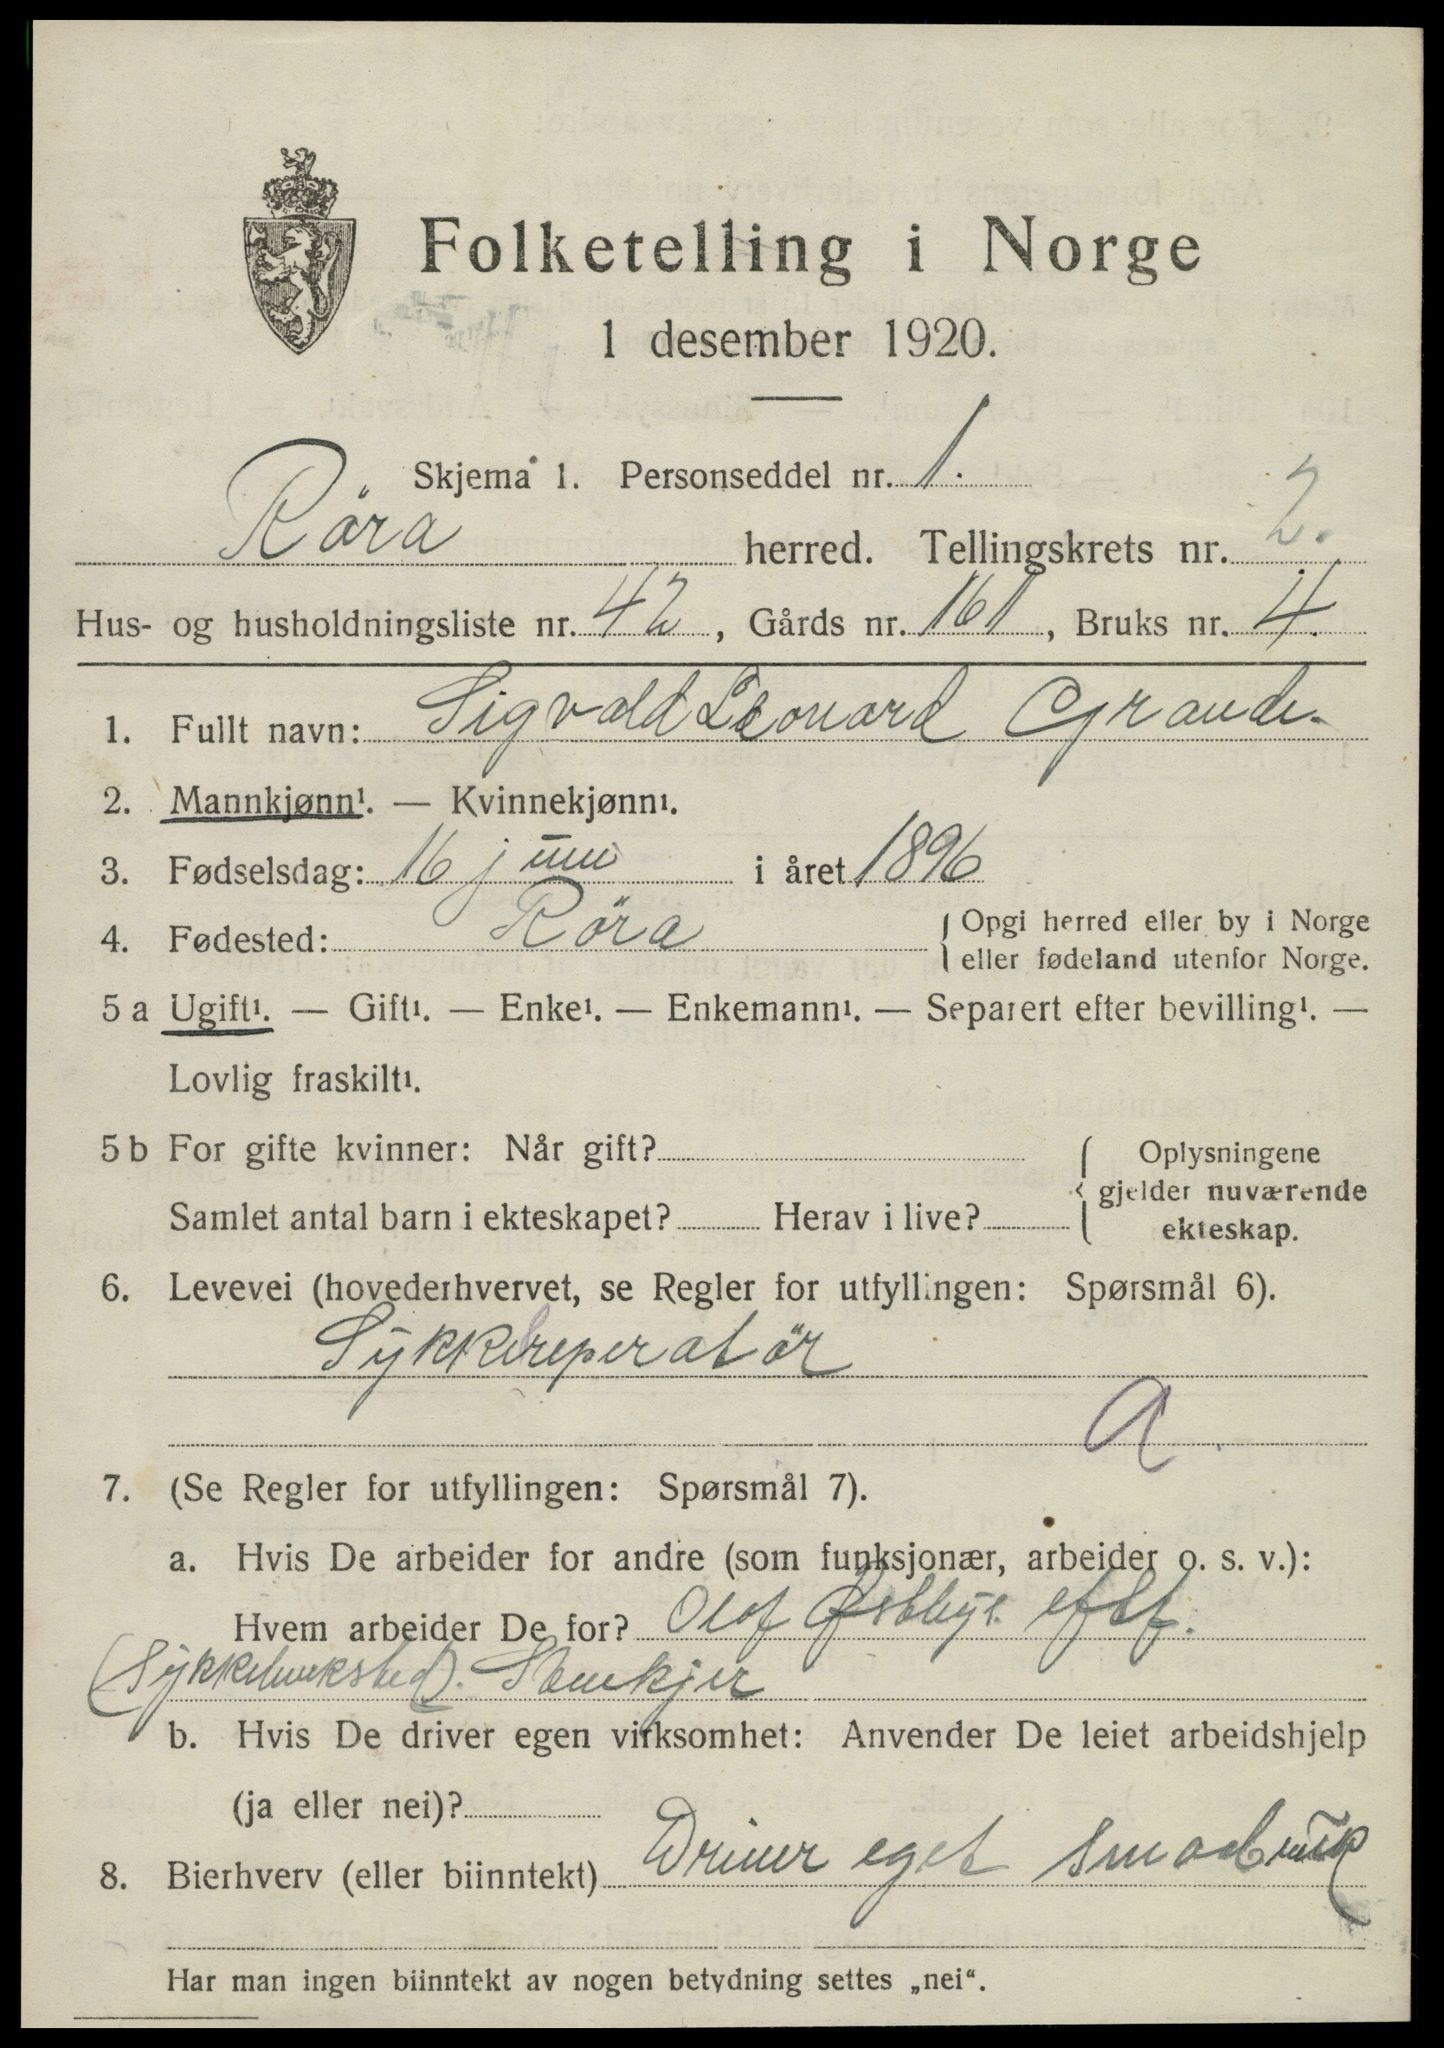 Folketelling i Norge
1 desember 1920.
Skjema 1. Personseddel nr. 1.
Röra herred. Tellingskrets nr. 2.
Hus- og husholdningsliste nr. 42, Gårds nr. 161, Bruks nr. 4.
1. Fullt navn: Sigvald Leonard Grande.
2. Mannkjønn¹. — Kvinnekjønn¹.
3. Fødselsdag: 16 juni i året 1896
4. Fødested: Röra { Opgi herred eller by i Norge
eller fødeland utenfor Norge.
5 a Ugift¹. — Gift¹. — Enke¹. — Enkemann¹. — Separert efter bevilling¹. —
Lovlig fraskilt¹.
5 b For gifte kvinner: Når gift? { Oplysningene
gjelder nuværende
Samlet antal barn i ekteskapet? Herav i live?
ekteskap.
6. Levevei (hovederhvervet, se Regler for utfyllingen: Spørsmål 6).
Sykkelreperatör
A.
7. (Se Regler for utfyllingen: Spørsmål 7).
a. Hvis De arbeider for andre (som funksjonær, arbeider o. s. v.):
Hvem arbeider De for? Olof eftf.
(Sykkelverksted). Stenkjer
b. Hvis De driver egen virksomhet: Anvender De leiet arbeidshjelp
(ja eller nei)?
8. Bierhverv (eller biinntekt) Driver eget smaabruk
Har man ingen biinntekt av nogen betydning settes „nei“.